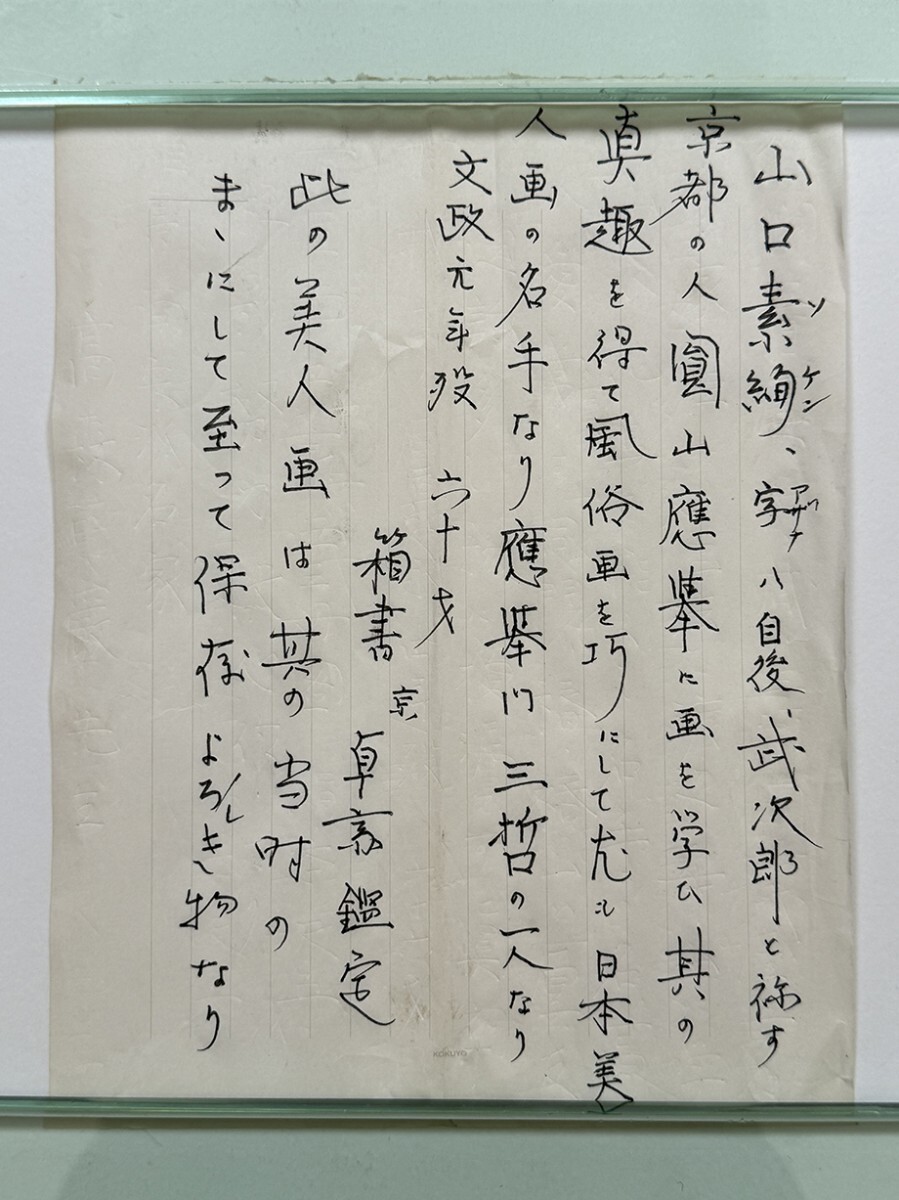 山口素絢、字ハ自後、武次郎と称す
ソケン
アザナ
京都の人圓山應挙に画を学ひ其の
真趣を得て風俗画を巧にして尤も日本美
人画の名手なり應挙門三哲の一人なり
文政元年歿 六十才
箱書 京 卓斎鑑定
此の美人画は其の当時の
まゝにして至って保存よろしき物なり
KOKUYO